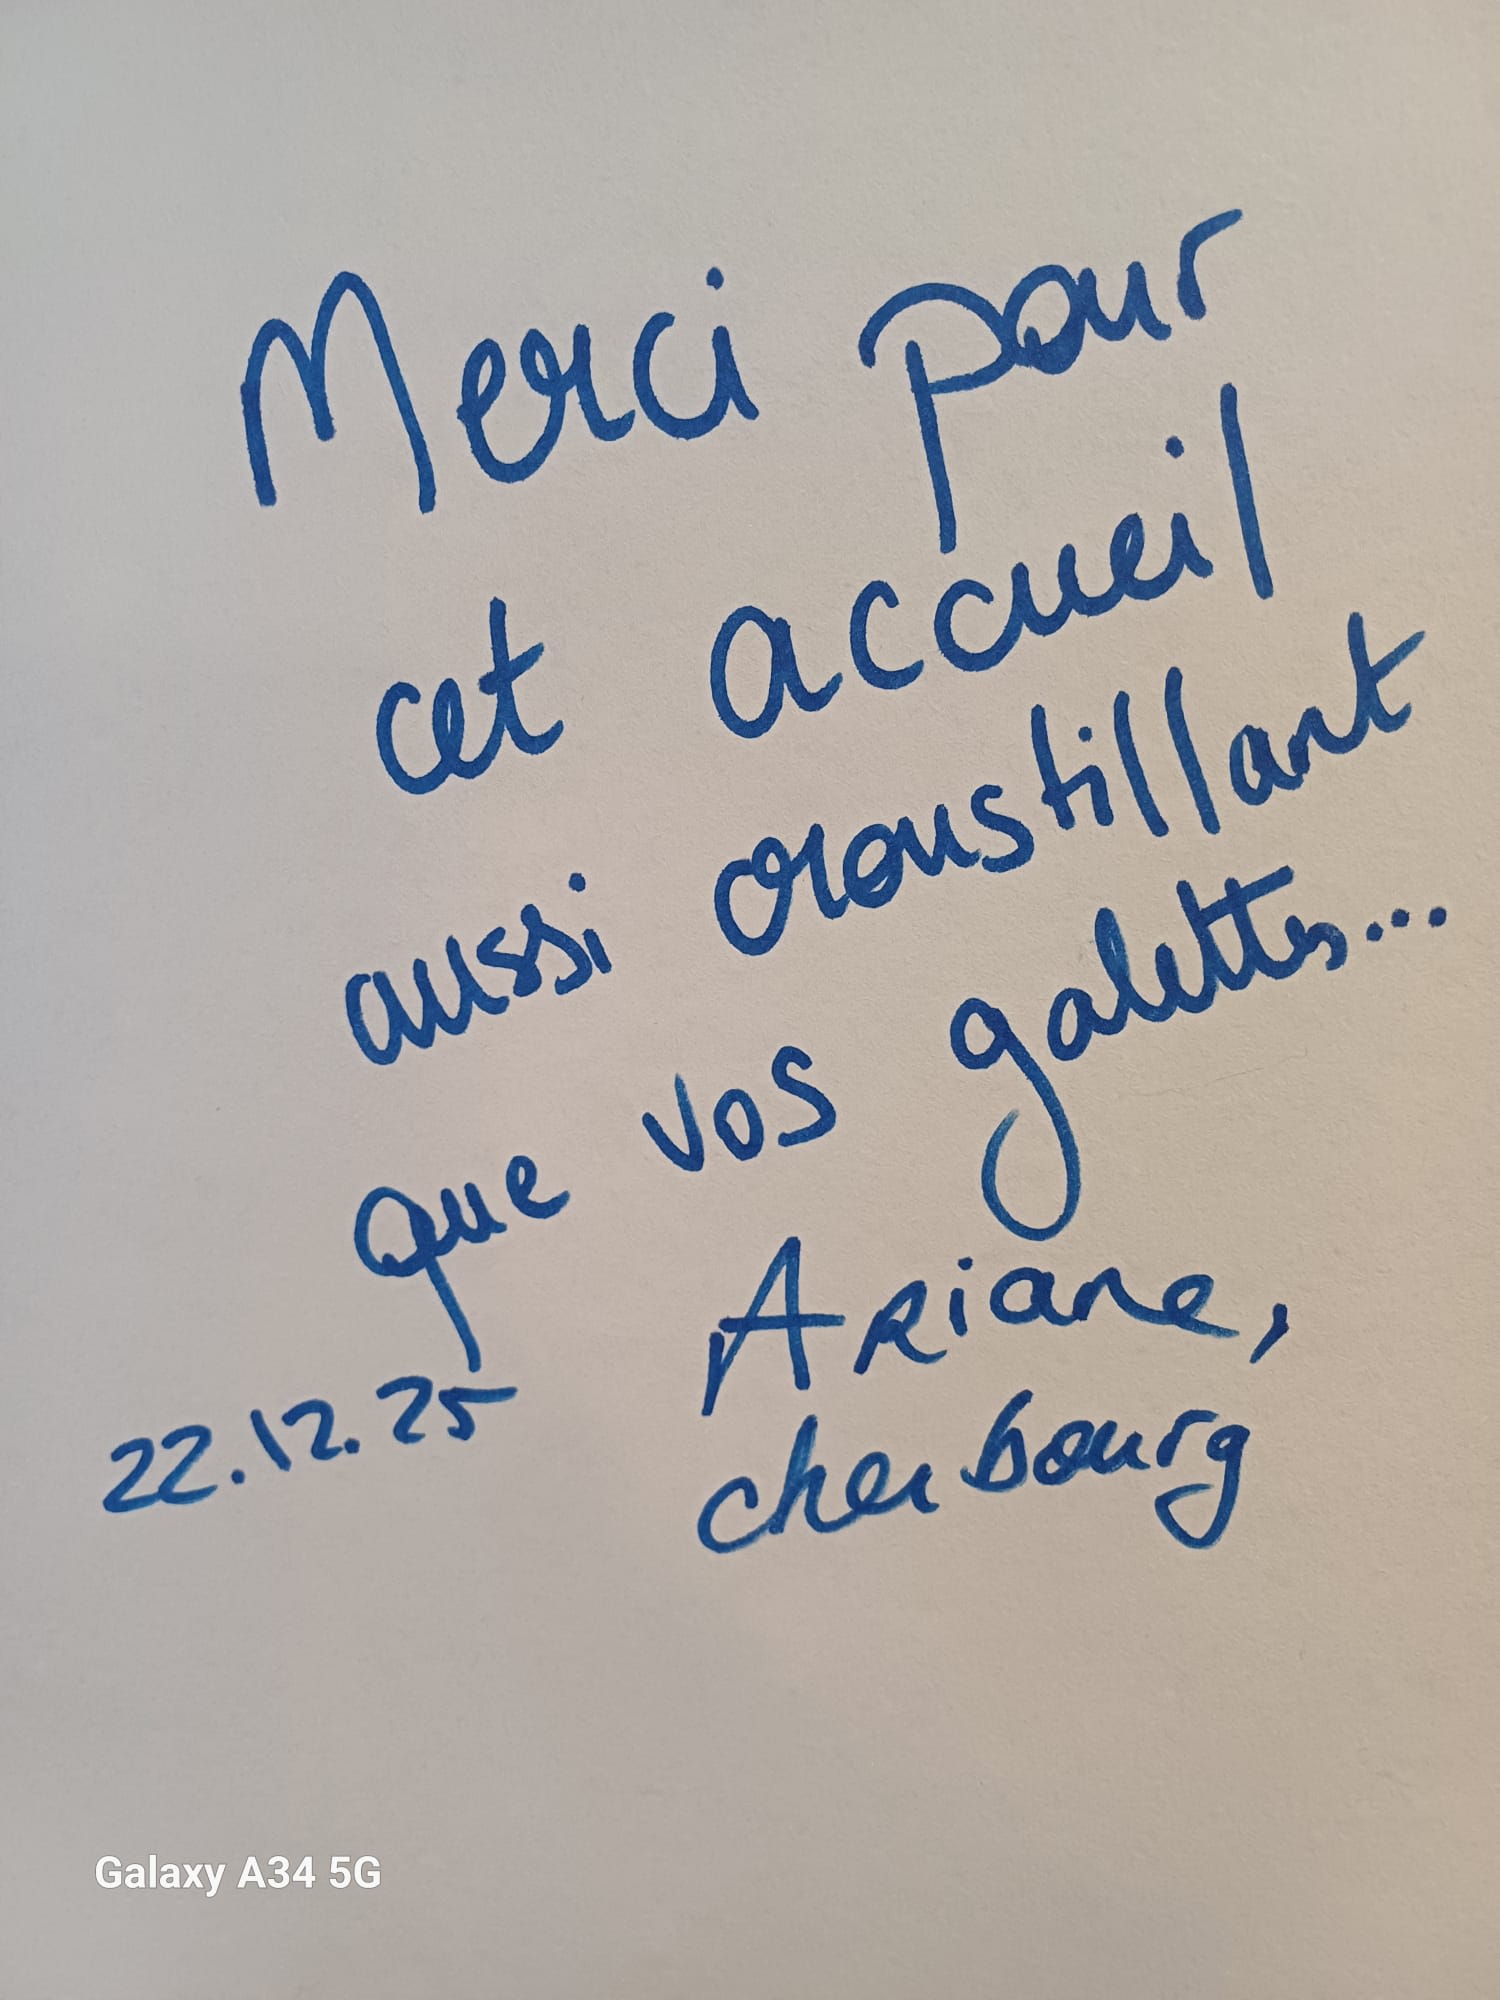 Merci pour
cet accueil
aussi croustillant
que vos galettes...
Ariane,
22.12.25
cherbourg
Galaxy A34 5G